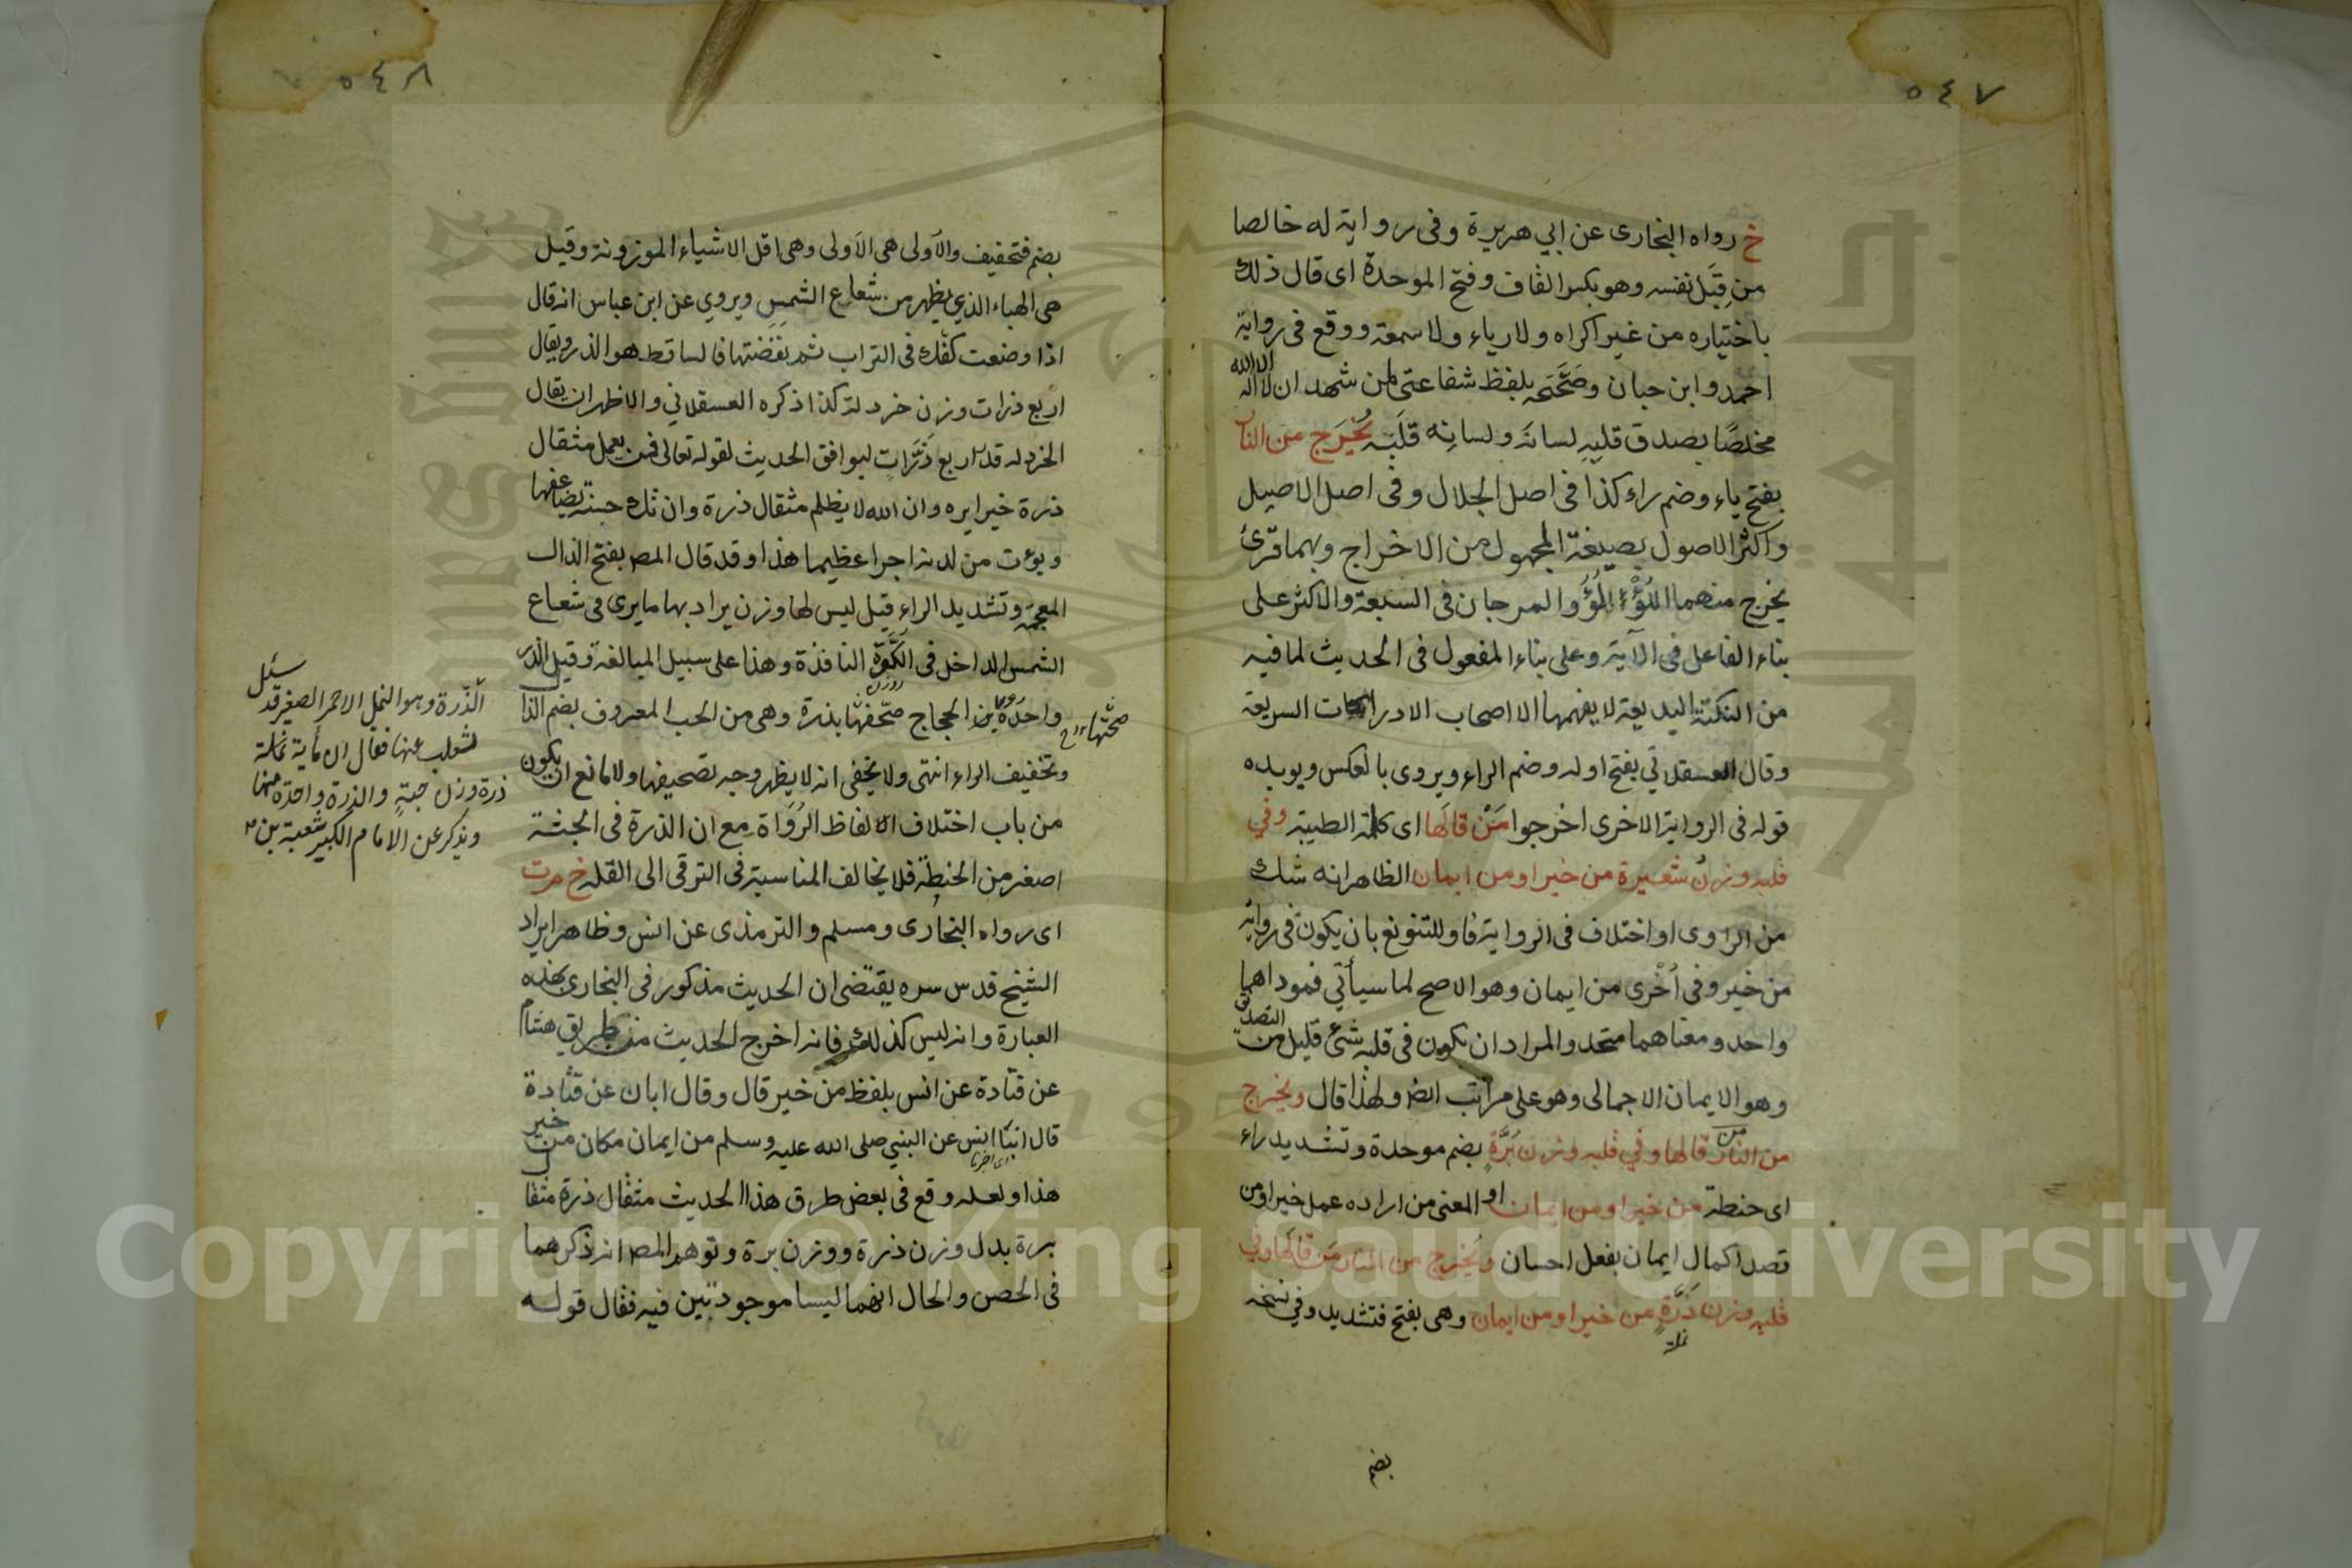 ٥٤٧
خ رواه البخارى عن ابي هريرة وفى رواية له خالصا
من قِبَل نفسه وهو بكسر القاف وفتح الموحدة اى قال ذلك
باختياره من غير اكراه ولا رياء ولا سمعة ووقع فى رواية
احمد وابن حبان وصَحَّحَه بلفظ شفاعتى لمن شهد ان لا اله الا الله
مخلصًا يصدق قلبِه لسانَه ولسانِه قلبَه يُخْرَج من النار
بفتح ياء وضم راء كذا فى اصل الجلال وفى اصل الاصيل
واكثر الاصول بصيغة المجهول من الاخراج وبهما قرئ
يخرج منهما اللؤلؤ والمرجان فى السبعة والاكثر على
بناء الفاعل فى الآية وعلى بناء المفعول فى الحديث لما فيه
من النكتة البديعة لا يفهمها الا اصحاب الادراكات السريعة
وقال العسقلاني بفتح اوله وضم الراء ويروى بالعكس ويويده
قوله فى الرواية الاخرى اخرجوا مَنْ قالَها اى كلمة الطيبة وفي
قلبه وزنُ شعيرة من خير او من ايمان الظاهر انه شك
من الراوى او اختلاف فى الرواية فاو للتنويع بان يكون فى رواية
من خير وفى اُخْرى من ايمان وهو الاصح لما سيأتي فموداهما
واحد ومعناهما متحد والمراد ان يكون فى قلبه شئ قليل من التصديق
وهو الايمان الاجمالى وهو على مراتب ايضا ولهذا قال ويخرج
من النار من قالها وفي قلبه وزن بُرَّةٍ بضم موحدة وتشديد راء
اى حنطة من خير او من ايمان او المعنى من اراده عمل خير او من
قصد اكمال ايمان بفعل احسان ويُخرج من النار مَن قالها وفي
قلبه وزن ذَرَّةٍ من خير او من ايمان وهى بفتح فتشديد وفي نسخه
نملة
بضم
٥٤٨
بضم فتخفيف والاَولى هى الاَولى وهى اقل الاشياء الموزونة وقيل
هى الهباء الذي يظهر من شعاع الشمسِ ويروي عن ابن عباس انه قال
اذا وضعت كفك فى التراب ثم نفضتها فالساقط هو الذر ويقال
اربع ذرات وزن خردلة كذا ذكره العسقلاني والاظهر ان يقال
الخردلة قدر اربع ذَرَّاتٍ ليوافق الحديث لقوله تعالى فمن يعمل مثقال
ذرة خيرا يره وان الله لا يظلم مثقال ذرة وان تك حسنة يضاعفها
ويؤت من لدنه اجرا عظيما هذا وقد قال المص بفتح الذال
المعجمة وتشديد الراء قيل ليس لها وزن يراد بها ما يرى فى شعاع
الشمس الداخل فى الكَوَّة النافذة وهذا على سبيل المبالغة وقيل الذر
روزن
واحدة بن الحجاج صحّفها بذرة وهى من الحب المعروف بضم الذال
صحتها
وتخفيف الراء انتهى ولا يخفى انه لا يظهر وجه تصحيفها ولا مانع ان يكون
من باب اختلاف الالفاظ الرُوَاة مع ان الذرة فى الجثة
اصغر من الحنطة فلا يخالف المناسبة فى الترقى الى القلة خ م ت
اى رواه البخارى ومسلم والترمذى عن انس وظاهر ايراد
الشيخ قدس سره يقتضى ان الحديث مذكور فى البخارى بهذه
العبارة وانه ليس كذلك فانه اخرج الحديث من طريق هشام
عن قتادة عن انس بلفظ من خير قال وقال ابان عن قتادة
قال انبَأ انس عن النبي صلى الله عليه وسلم من ايمان مكان من خير
اى اخبرنا
هذا ولعله وقع فى بعض طرق هذا الحديث مثقال ذرة مثقال
برة بدل وزن ذرة ووزن برة وتوهم المص انه ذكرهما
فى الحصن والحال انهما ليسا موجودتين فيه فقال قوله
سئل
الذّرة وهو النمل الاحمر الصغير قد
ثعلب عنها فقال ان مأية نملة
ذرة وزن حبةٍ والذرة واحدة منها
ويذكر عن الامام الكبير شعبة بن
Copyright © King Saud University
جامعة الملك سعود
King Saud University
1957